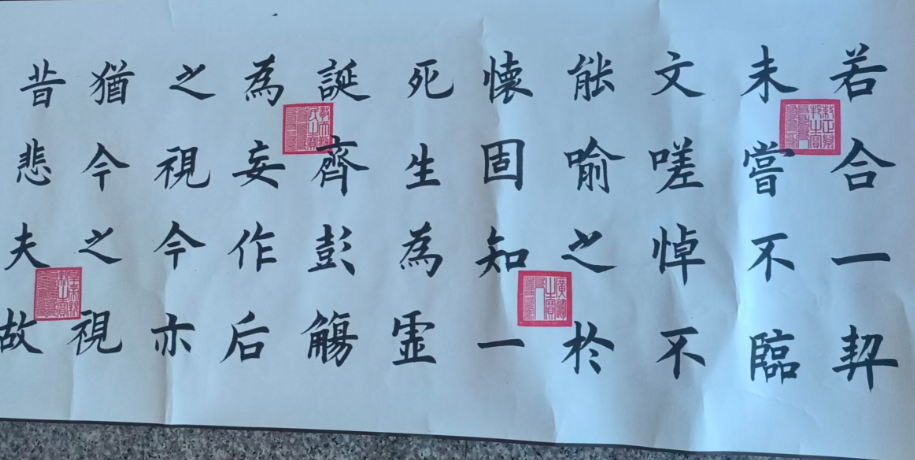 若合一契
未嘗不臨
文嗟悼不
能喻之於
懐固知一
死生為虚
誕齊彭觴
為妄作后
之視今亦
猶今之視
昔悲夫故